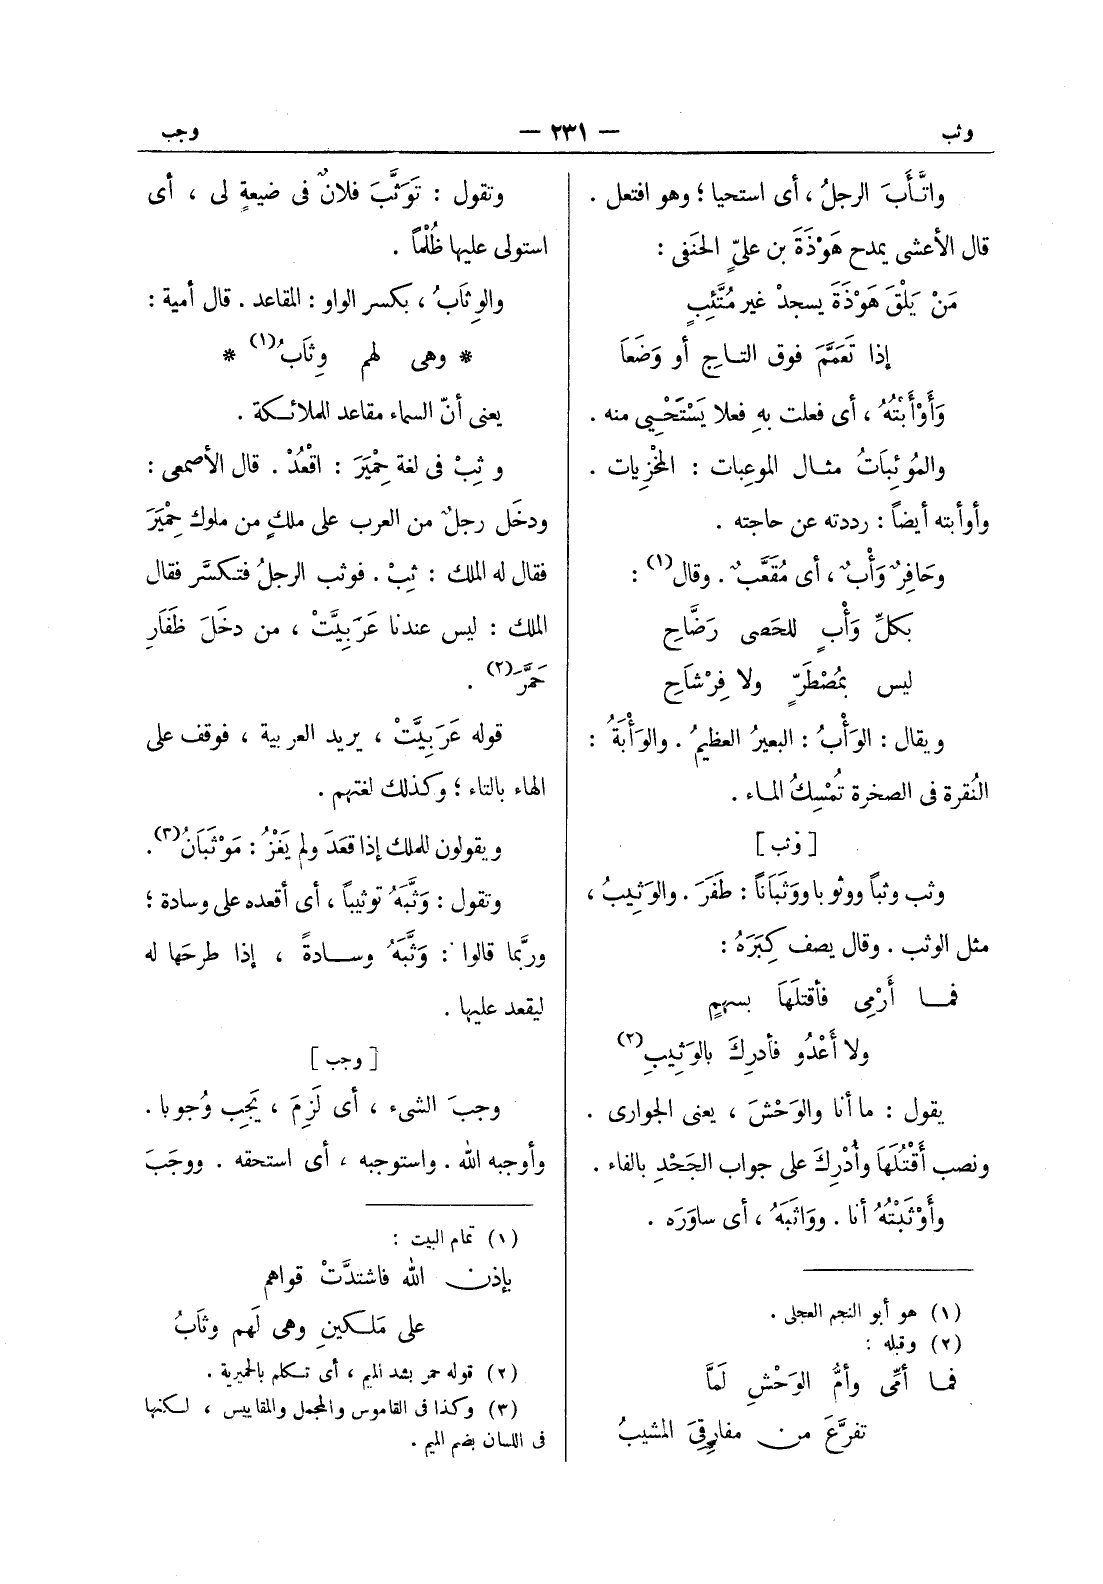 وثب
— ٢٣١ —
وجب
واتَّأَبَ الرجلُ ، أى استحيا ؛ وهو افتعل .
قال الأعشى يمدح هَوْذَةَ بن علىٍّ الحنَفى :
مَنْ يَلْقَ هَوْذَةَ يسجدْ غير مُتَّئِبٍ
إذا تَعَمَّمَ فوق التاجِ أو وَضَعَا
وَأَوْأَبْتُهُ ، أى فعلت بهِ فعلا يَسْتَحْيِى منه .
والمُوئِبَاتُ مثال الموعبات : المخْزِيات .
وأوأبته أيضاً : رددته عن حاجته .
وحَافِرٌ وَأْبٌ ، أى مُقَعَّبٌ . وقال(١) :
بكلِّ وَأْبٍ للحَصى رَضَّاحِ
ليس بمُصْطَرٍّ ولا فِرْشَاحِ
ويقال : الوَأْبُ : البعيرُ العظيمُ . والوَأْبَةُ :
النُقرة فى الصخرة تُمْسِكُ الماء .
[ وثب ]
وثب وثباً ووثوبا ووَثَبَاناً : طَفَرَ . والوَثِيبُ ،
مثل الوثب . وقال يصف كِبَرَهُ :
فما أَرْمِى فأقتلَهَا بسهمٍ
ولا أَعْدُو فأدرِكَ بالوَثِيبِ(٢)
يقول : ما أنا والوَحْشَ ، يعنى الجوارى .
ونصب أَقْتُلَهَا وأُدْرِكَ على جواب الجَحْدِ بالفاء .
وأَوْثَبْتُهُ أنا . ووَاثَبَهُ ، أى ساوَرَه .
(١) هو أبو النجم العجلى .
(٢) وقبله :
فما أمِّى وأمُّ الوَحْشِ لَمَّا
تفرَّعَ من مفارِقِىَ المشيبُ
وتقول : تَوَثَّبَ فلانٌ فى ضيعةٍ لى ، أى
استولى عليها ظُلْماً .
والوِثَابُ ، بكسر الواو : المقاعد . قال أمية :
* وهى لهم وِثَابُ(١) *
يعنى أنّ السماء مقاعد للملائكة .
وثِبْ فى لغة حِمْيَرَ : اقْعُدْ . قال الأصمعى :
ودخَل رجلٌ من العرب على ملكٍ من ملوك حِمْيَرَ
فقال له الملك : ثِبْ . فوثب الرجلُ فتكسَّر فقال
الملك : ليس عندنا عَرَبِيَّتْ ، من دخَلَ ظَفَارِ
حَمَّرَ(٢) .
قوله عَرَبِيَّتْ ، يريد العربية ، فوقف على
الهاء بالتاء ؛ وكذلك لغتهم .
ويقولون للملك إذا قعَدَ ولم يَغْزُ : مَوْثَبَانُ(٣) .
وتقول : وَثَّبَهُ توثيباً ، أى أقعده على وسادة ؛
وربَّما قالوا : وَثَّبَهُ وسادةً ، إذا طرحَها له
ليقعد عليها .
[ وجب ]
وجبَ الشىء ، أى لَزِمَ ، يَجِب وُجوبا .
وأوجبه الله . واستوجبه ، أى استحقه . ووجَبَ
(١) تمام البيت :
بإذن الله فاشتدَّتْ قواهم
على مَلكينِ وهى لَهم وثَابُ
(٢) قوله حمر بشد الميم ، أى تكلم بالحميرية .
(٣) وكذا فى القاموس والمجمل والمقاييس ، لكنها
فى اللسان بضم الميم .